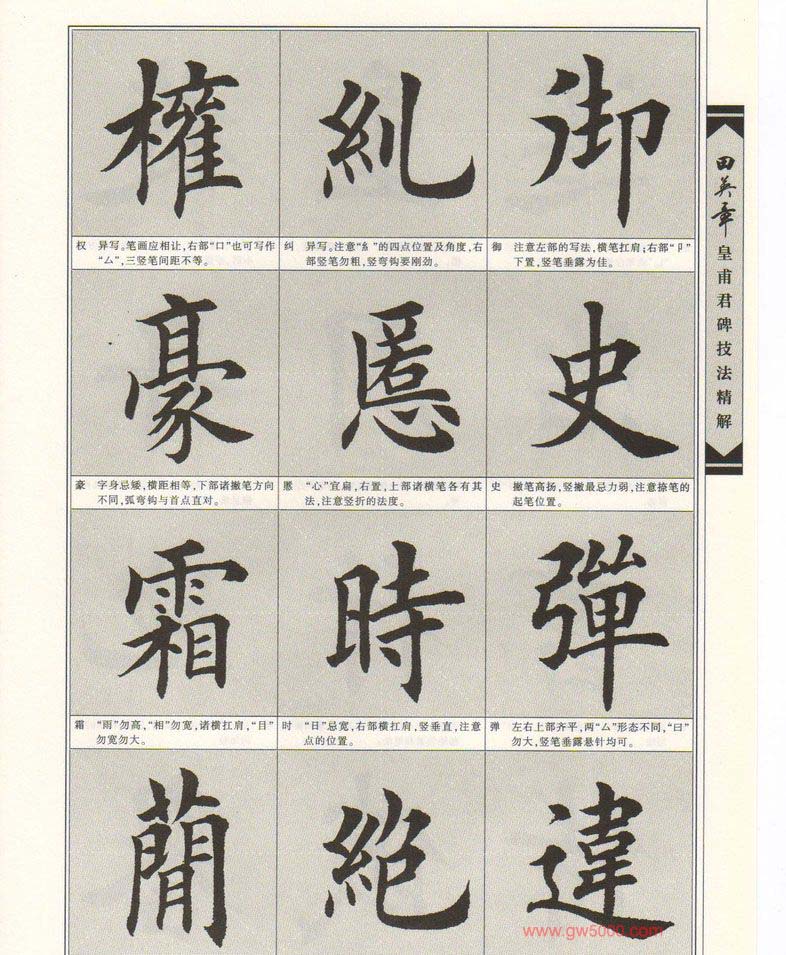 田英章
皇甫君碑技法精解
御
御 注意左部的写法,横笔扛肩;右部“卩”
下置,竖笔垂露为佳。
史
史 撇笔高扬,竖撇最忌力弱,注意捺笔的
起笔位置。
彈
弹 左右上部齐平,两“厶”形态不同,“曰”
勿大,竖笔垂露悬针均可。
違
糺
纠 异写。注意“糹”的四点位置及角度,右
部竖笔勿粗,竖弯钩要刚劲。
慝
慝 “心”宜扁,右置,上部诸横笔各有其
法,注意竖折的法度。
時
时 “日”忌宽,右部横扛肩,竖垂直,注意
点的位置。
絶
權
权 异写。笔画应相让,右部“口”也可写作
“厶”,三竖笔间距不等。
豪
豪 字身忌矮,横距相等,下部诸撇笔方向
不同,弧弯钩与首点直对。
霜
霜 “雨”勿高,“相”勿宽,诸横扛肩,“目”
勿宽勿大。
蕳
www.gw5000.com